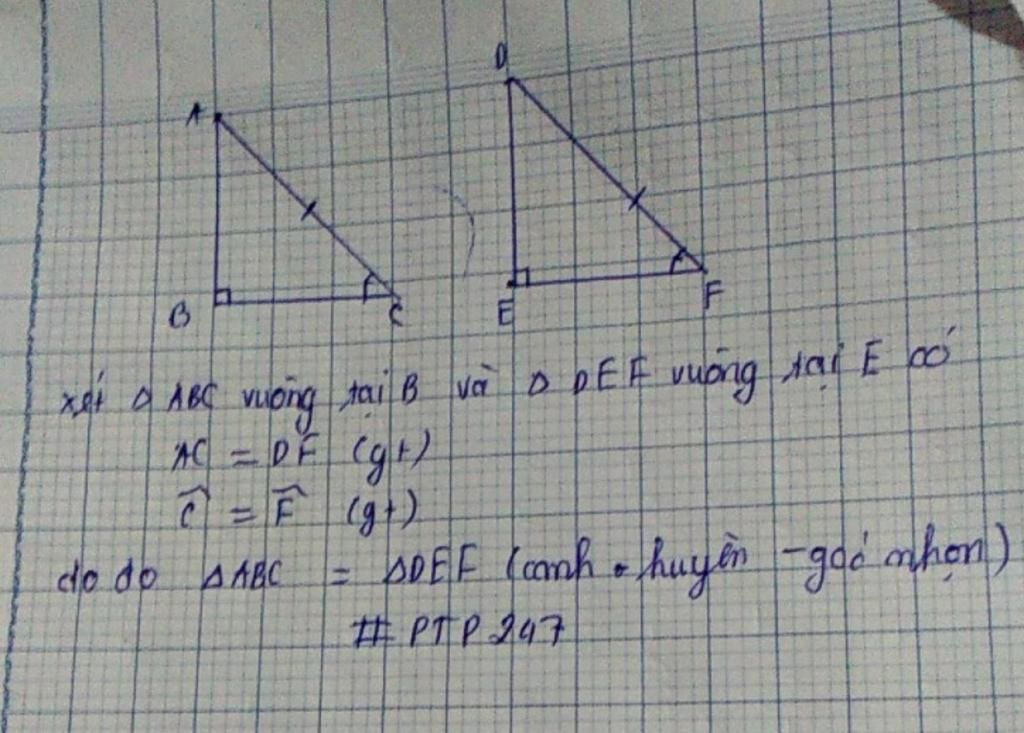 A
D
B
C
E
F
xét Δ ABC vuông tại B và Δ DEF vuông tại E có
AC = DF (gt)
Ĉ = F̂ (gt)
do do ΔABC = ΔDEF (canh - huyền - góc nhọn)
# PTP 247